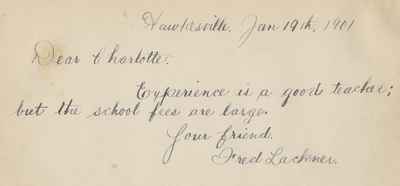 Hawkesville. Jan 19th, 1901
Dear Charlotte:
Experience is a good teacher;
but the school fees are large.
Your friend.
Fred Lackner.